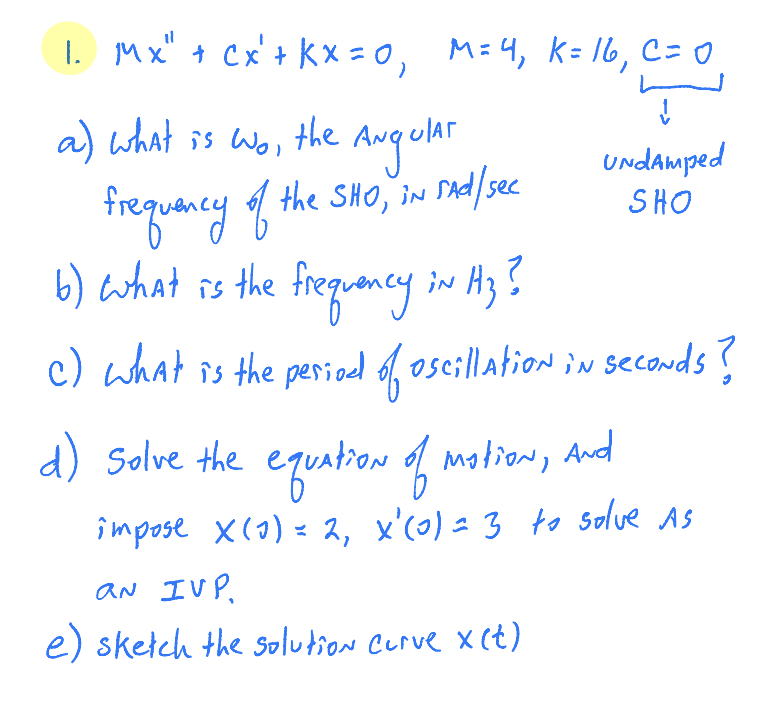 1. Mx" + Cx' + Kx = 0, M = 4, K = 16, C = 0
a) What is ω₀, the Angular
undamped
frequency of the SHO, in rad/sec
SHO
b) What is the frequency in Hz?
c) What is the period of oscillation in seconds?
d) Solve the equation of motion, and
impose x(0) = 2, x'(0) = 3 to solve as
an IVP.
e) sketch the solution curve x(t)